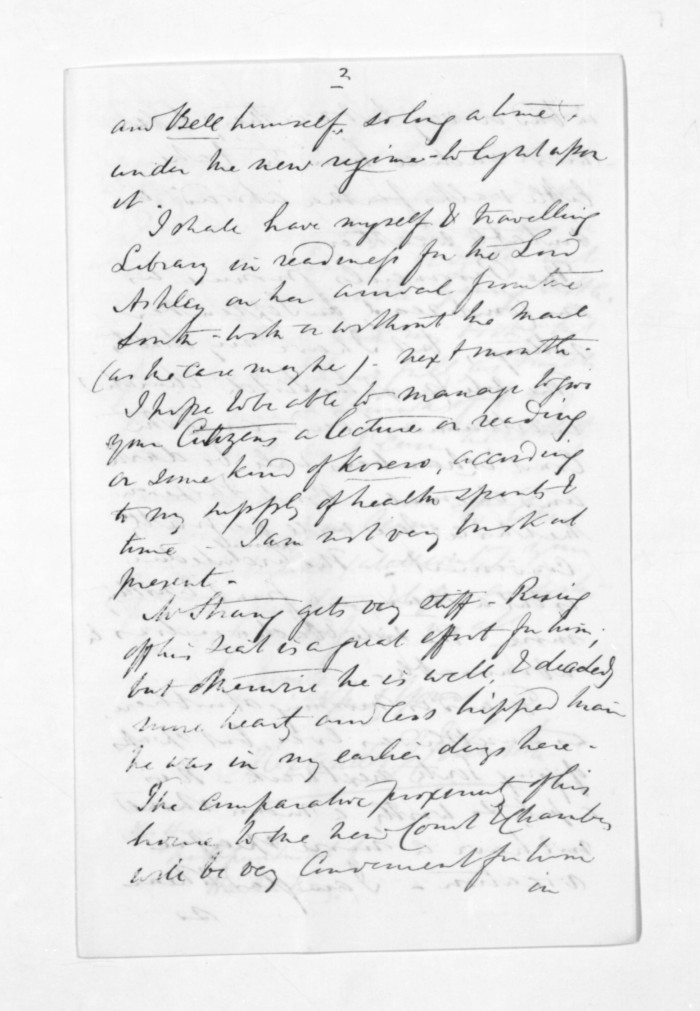 2
and Bell himself, so long a time
under the new regime - to light upon
it.
I shall have myself & travelling
Library in readiness for the Lord
Ashley on her arrival from the
South - with or without the Mail
(as the case may be) - next month.
I hope to be able to manage to give
your Citizens a lecture or reading
or some kind of Korero, according
to my supply of health spirits &
time. I am not very brisk at
present -
Mr Strang gets very stiff - Rising
off his seat is a great effort for him;
but otherwise he is well, & decidedly
more hearty and less hipped than
he was in my earlier days here -
The comparative proximity of his
house to the new Court & Chambers
will be very convenient for him
in